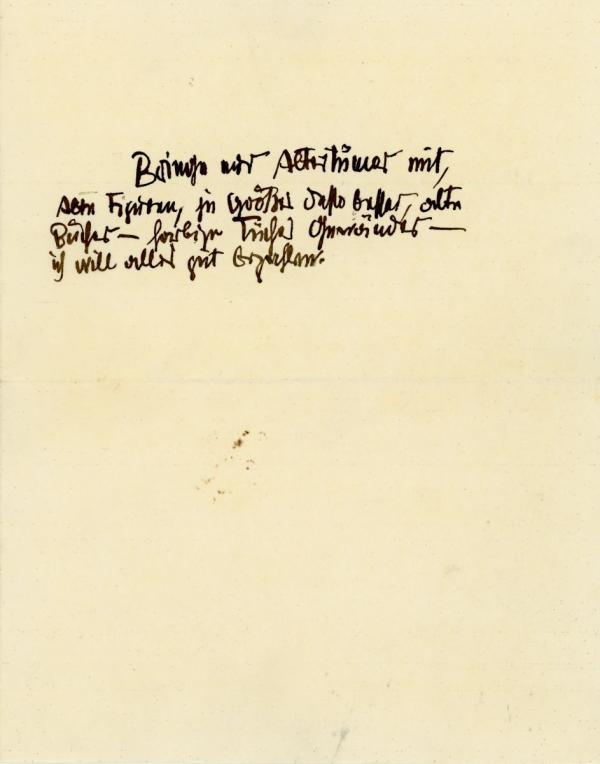 Bringe mir Altertümer mit,
alte Figuren, je größer desto besser, alte
Bücher — farbige Tücher Gewänder —
ich will alles gut bezahlen.